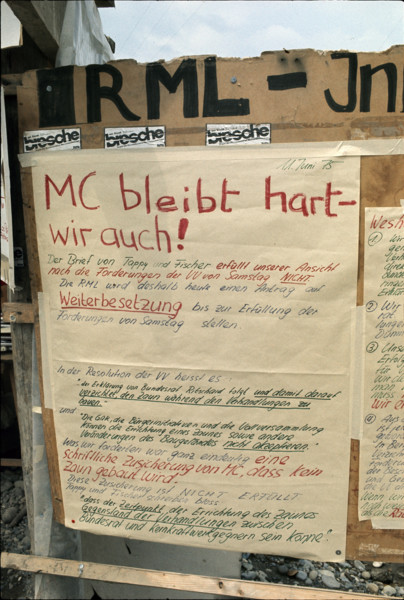 RML - In
bresche
bresche
bresche
11. Juni 75
MC bleibt hart-
wir auch!
Der Brief von Tappy und Fischer erfüllt unserer Ansicht
nach die Forderungen der VV von Samstag NICHT
Die RML wird deshalb heute einen Antrag auf
Weiterbesetzung bis zur Erfüllung der
Forderungen von Samstag stellen.
In der Resolution der VV heisst es
"der Erklärung von Bundesrat Ritschard folgt und damit darauf
verzichtet den Zaun während den Verhandlungen zu
bauen."
und
"Die GAK, die Bürgerinitiativen und die Vollversammlung
können die Errichtung eines Zaunes sowie andere
Veränderungen des Baugeländes nicht akzeptieren."
Was wir forderten war ganz eindeutig eine
schriftliche Zusicherung von MC, dass kein
Zaun gebaut wird.
Diese Zusicherung ist NICHT ERFÜLLT
Tappy und Fischer schreiben bloss
"dass der Zeitpunkt der Errichtung des Zaunes
Gegenstand der Verhandlungen zwischen
Bundesrat und Kernkraftwerkgegnern sein könne"!
Wesh
① Wi
② Wir
③ Unse
④